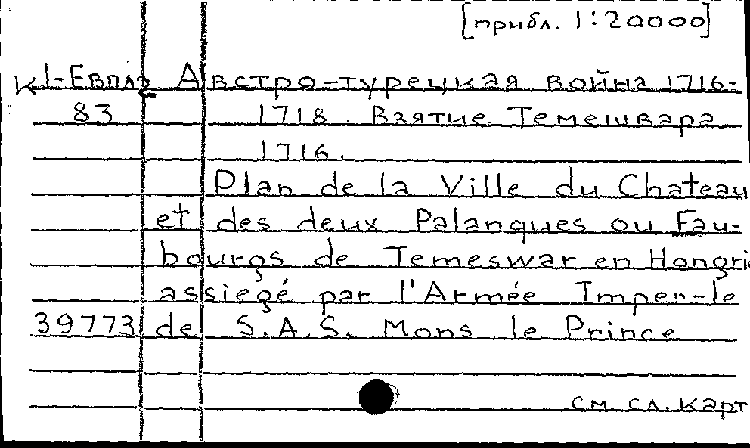 [прибл. 1:20000]
К1-Евпл2 Австро-турецкая война 1716-
83 1718. Взятие Темешвара
1716.
Plan de la Ville du Chateau
et des deux Palanques ou Fau-
bourgs de Temeswar en Hongri
assiegé par l'Armée Imper-le
39773 de S.A.S. Mons le Prince
см. сл. карт